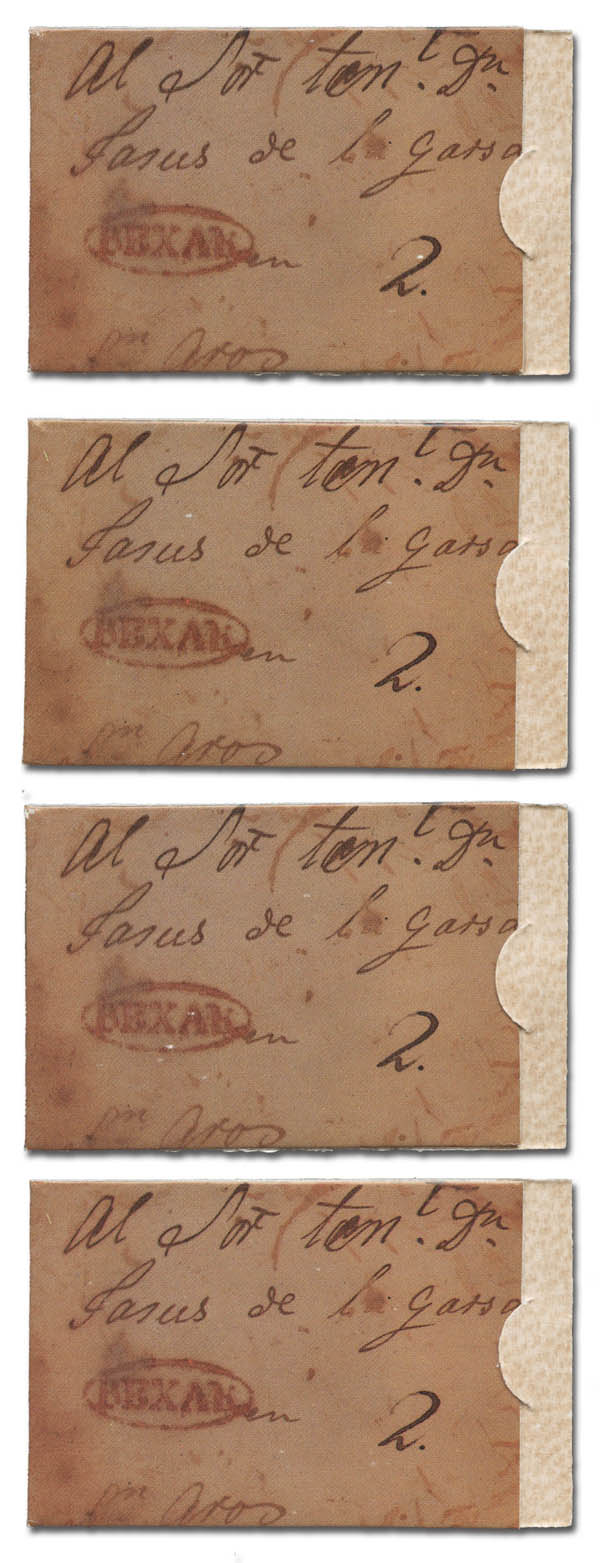 Al Sor ten.t Dn.
Jasus de la garsa
BEXAR
en 2.
Al Sor ten.t Dn.
Jasus de la garsa
BEXAR
en 2.
Al Sor ten.t Dn.
Jasus de la garsa
BEXAR
en 2.
Al Sor ten.t Dn.
Jasus de la garsa
BEXAR
en 2.